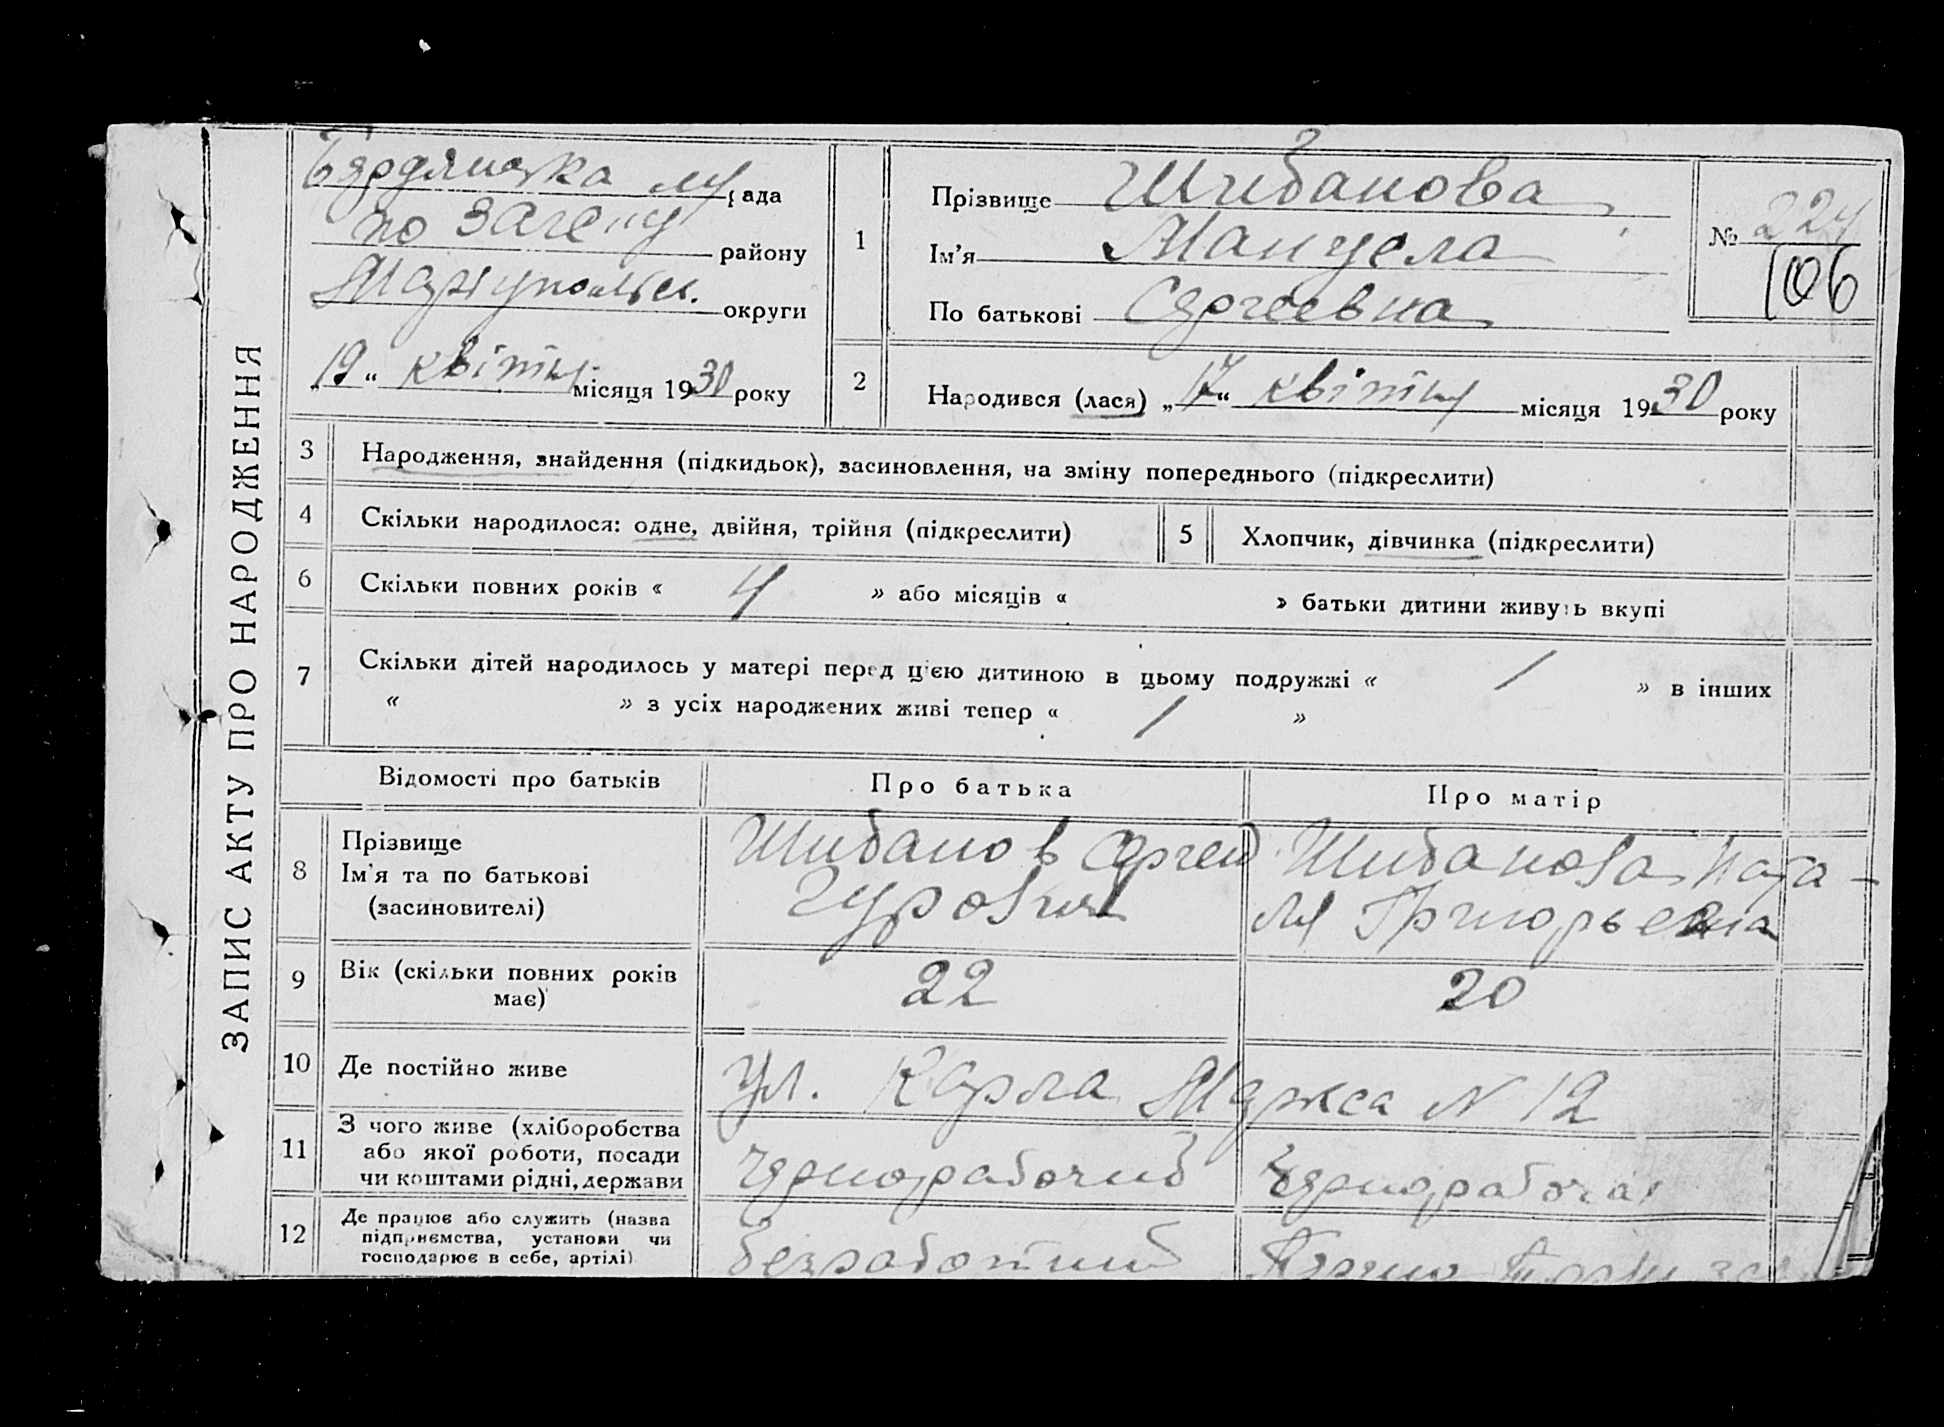 ЗАПИС АКТУ ПРО НАРОДЖЕННЯ
Бердянська рада
по Загсу району
Маріупольськ. округи
„19“ квітня місяця 1930 року
1
Прізвище Шибанова
Ім’я
По батькові Сергеевна
№ 224
106
2
Народився (лася) „17“ квітня місяця 1930 року
3 Народження, знайдення (підкидьок), засиновлення, на зміну попереднього (підкреслити)
4 Скільки народилося: одне, двійня, трійня (підкреслити)
5 Хлопчик, дівчинка (підкреслити)
6 Скільки повних років « 4 » або місяців « » батьки дитини живуть вкупі
7 Скільки дітей народилось у матері перед цією дитиною в цьому подружжі « 1 » в інших
« » з усіх народжених живі тепер « 1 »
Відомості про батьків Про батька Про матір
8 Прізвище
Ім’я та по батькові
(засиновителі)
Шибанов Сергей
Гурович
Шибанова Ната-
лия Григорьевна
9 Вік (скільки повних років
має)
22 20
10 Де постійно живе ул. Карла Маркса N 12
11 З чого живе (хліборобства
або якої роботи, посади
чи коштами рідні, держави
Чернорабочий Чернорабочая
12 Де працює або служить (назва
підприємства, установи чи
господарює в себе, артілі)
безработний